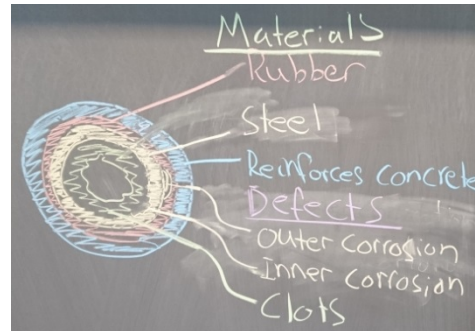 Materials
Rubber
Steel
Reinforces concrete
Defects
Outer corrosion
Inner corrosion
Clots